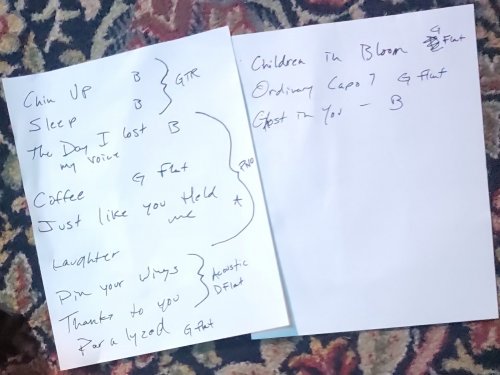 Chin Up B
GTR
Sleep B
The Day I lost B
my voice
PNO
Coffee G Flat
Just like you Held A
me
Laughter
Pin your wings
Acoustic
D Flat
Thanks to you
Paralyzed G flat
Children in Bloom G Flat
Ordinary Capo 7 G Flat
Ghost in You - B